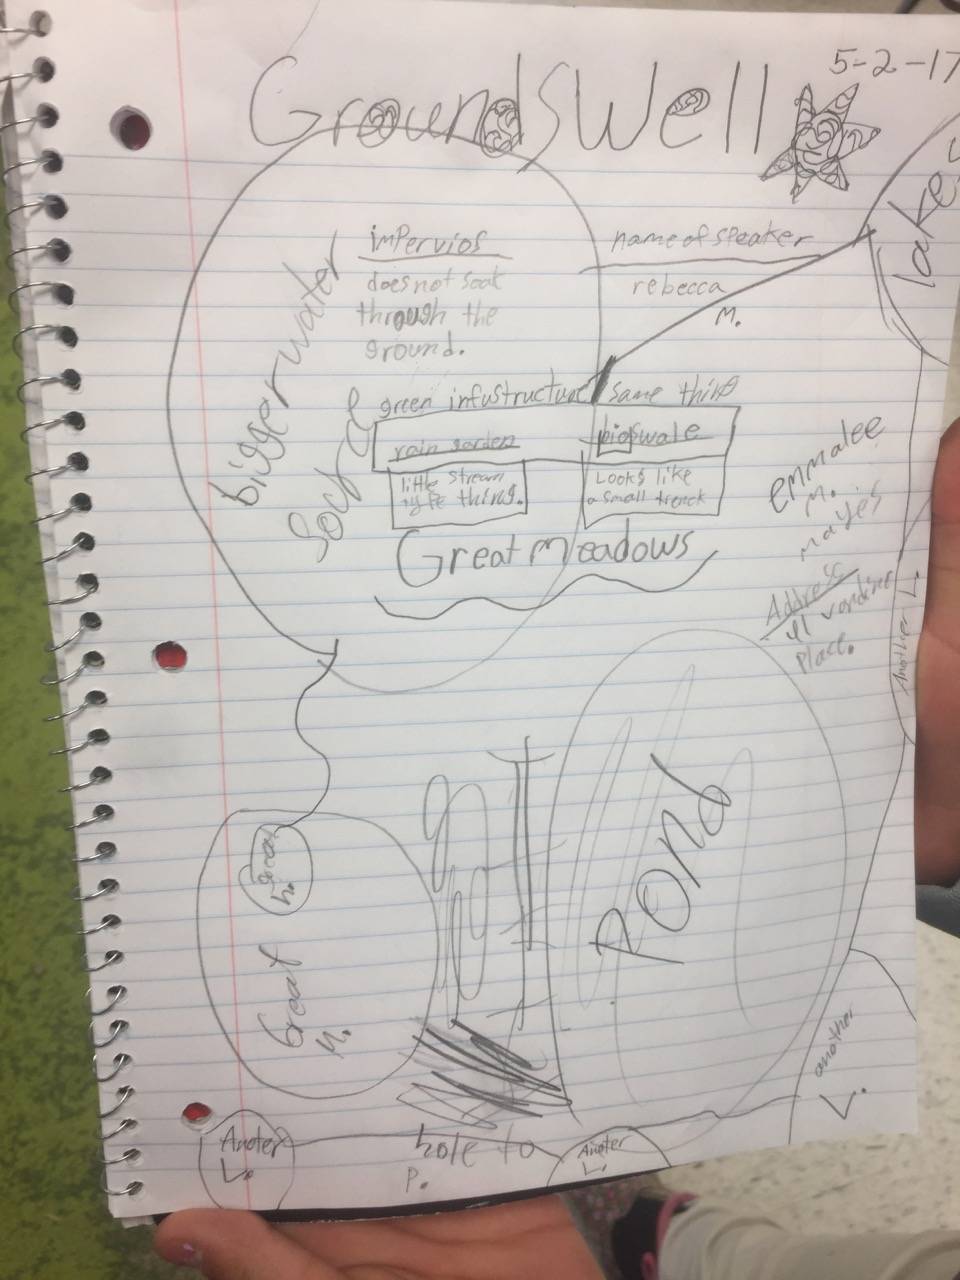 5-2-17
GroundSWell
lake
impervios
does not soak
through the
ground.
name of speaker
rebecca
m.
bigger water
Sorce
green infustructure
same thing
rain garden
bioswale
little stream
type thing.
Looks like
a small trench
Great meadows
emmalee
m.
mayes
Address
41
place.
Another L.
Pond
Great
M.
another
L.
Anoter
L.
hole to
P.
Anoter
L.